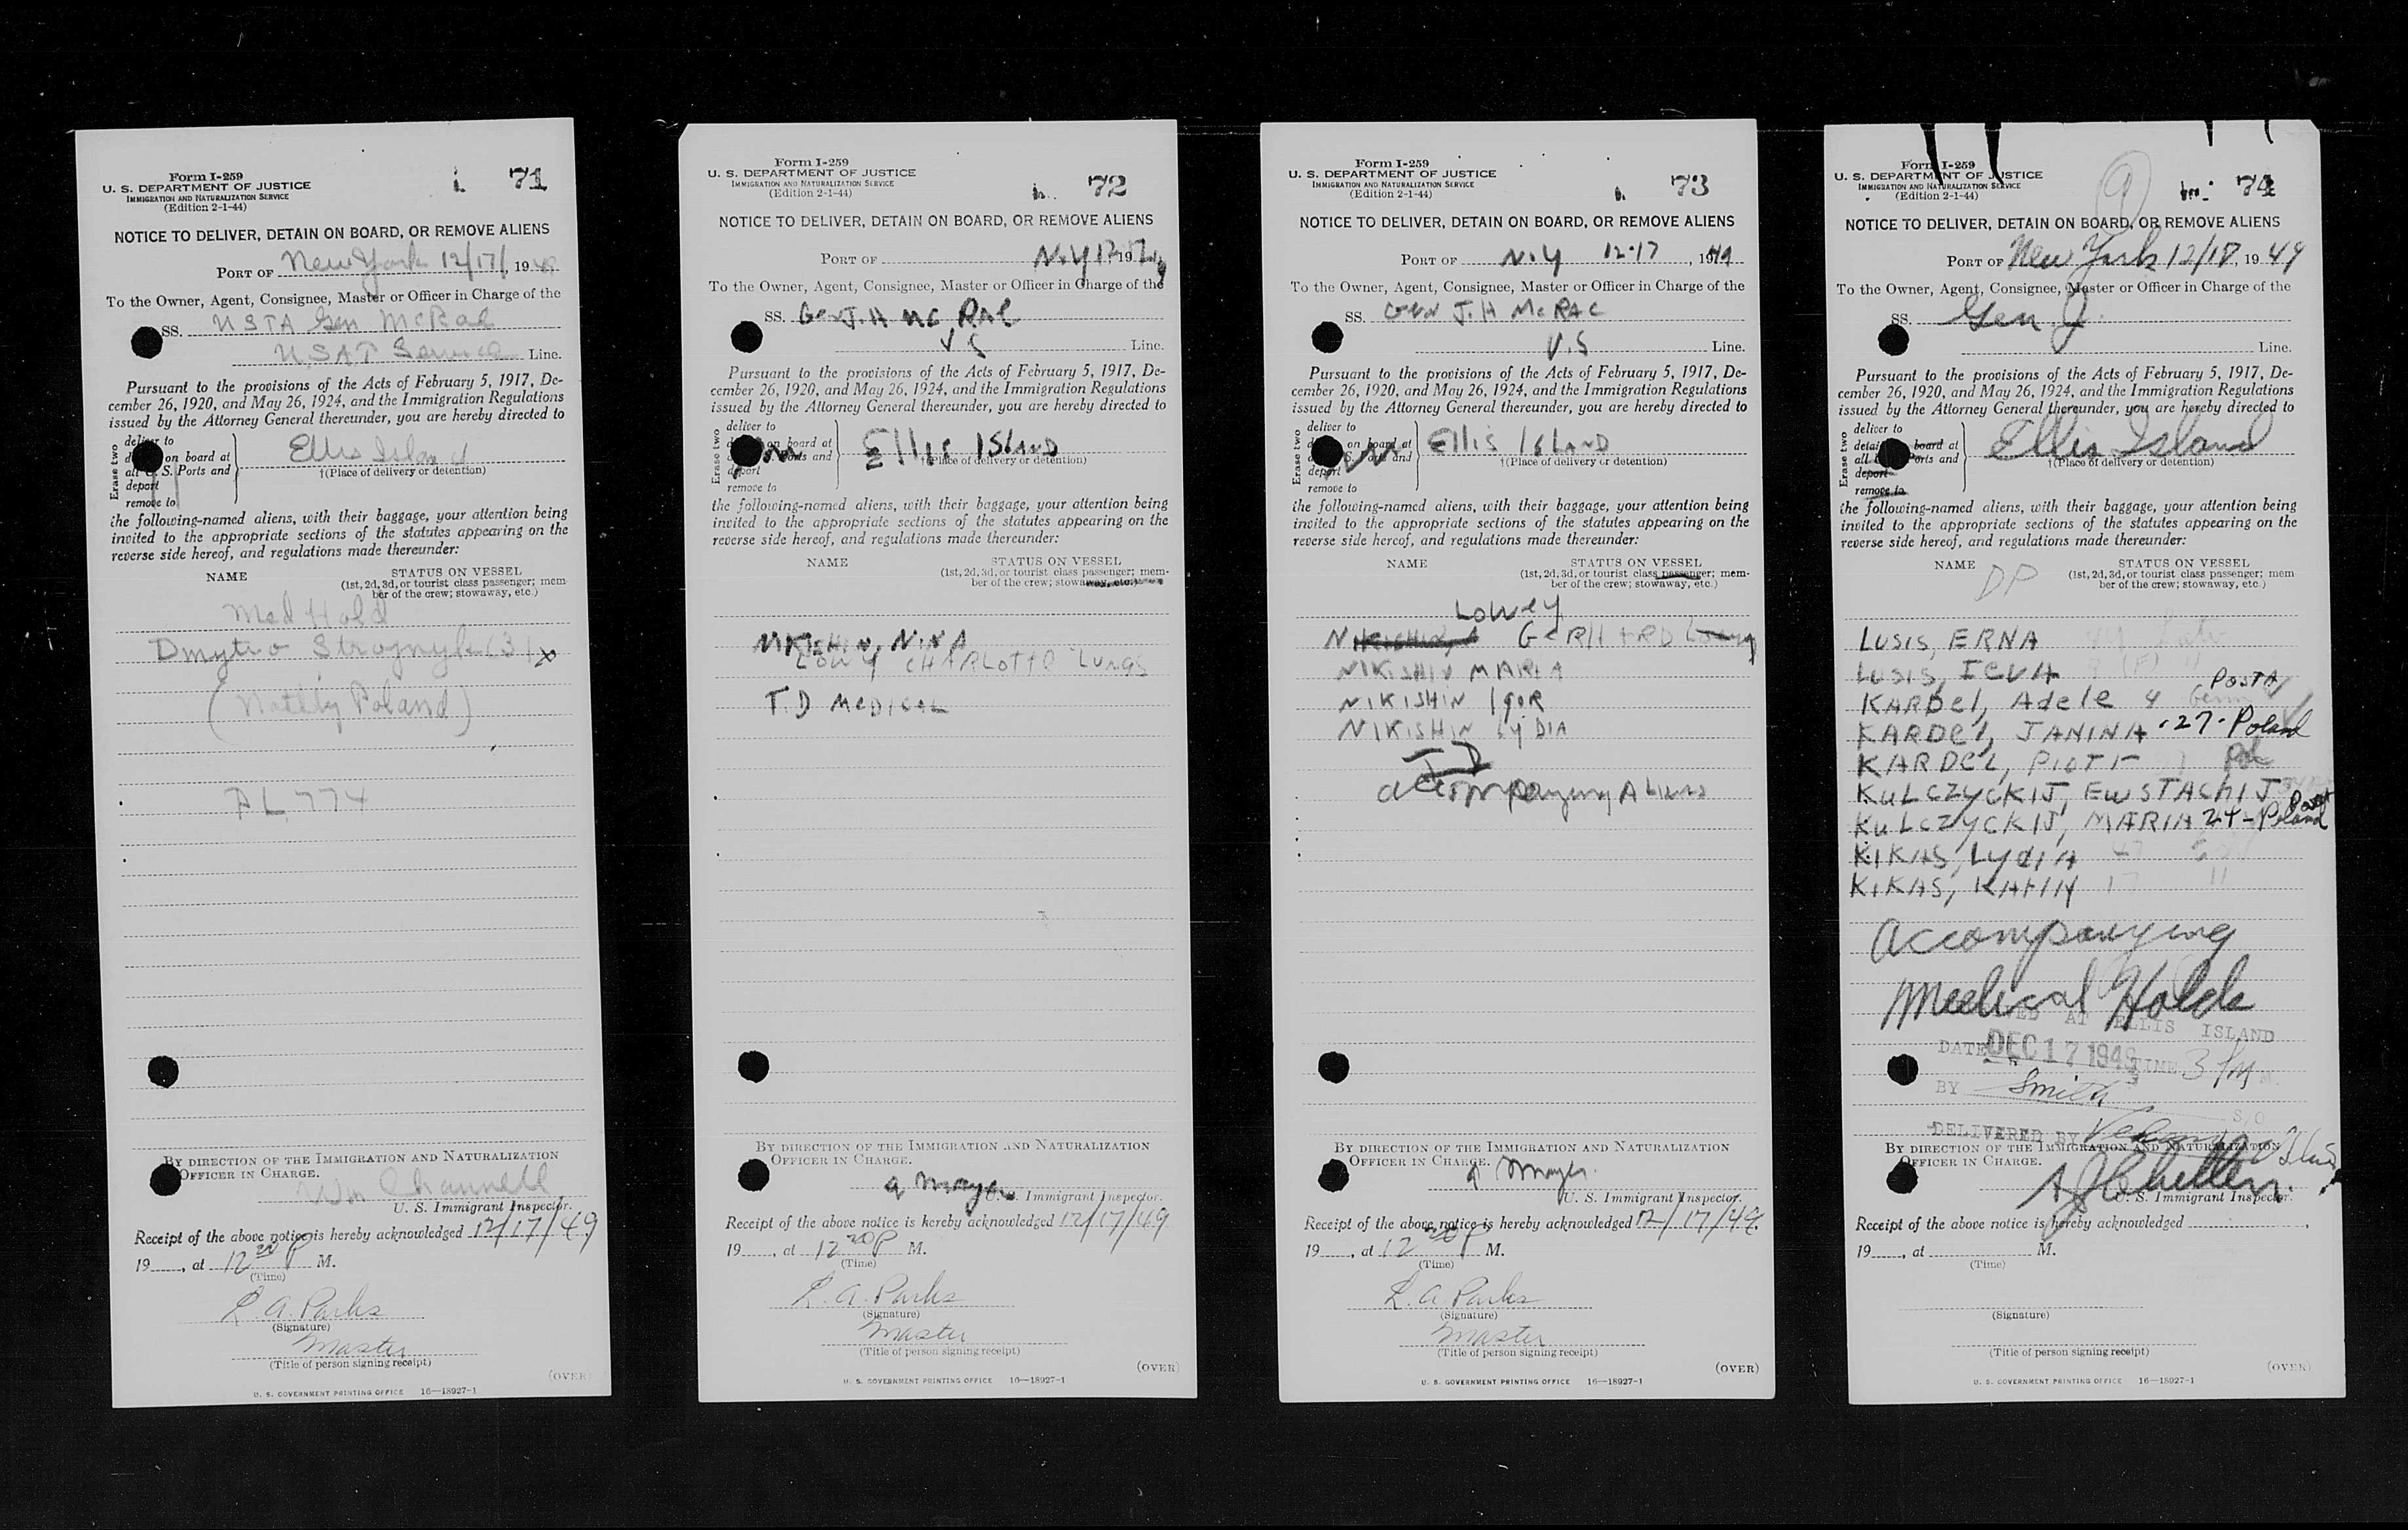 Form I-259
U. S. DEPARTMENT OF JUSTICE
IMMIGRATION AND NATURALIZATION SERVICE
(Edition 2-1-44)
71
NOTICE TO DELIVER, DETAIN ON BOARD, OR REMOVE ALIENS
PORT OF New York 12/17/, 1949
To the Owner, Agent, Consignee, Master or Officer in Charge of the
SS. USTA Gen McRae
U.S.A.T. Service Line.
Pursuant to the provisions of the Acts of February 5, 1917, De-
cember 26, 1920, and May 26, 1924, and the Immigration Regulations
issued by the Attorney General thereunder, you are hereby directed to
Erase two
deliver to
on board at
S. Ports and
deport
remove to
Ellis Island
†(Place of delivery or detention)
the following-named aliens, with their baggage, your attention being
invited to the appropriate sections of the statutes appearing on the
reverse side hereof, and regulations made thereunder:
NAME STATUS ON VESSEL
(1st, 2d, 3d, or tourist class passenger; mem-
ber of the crew; stowaway, etc.)
Med Hold
Dmytro (3) X
Poland)
774
BY DIRECTION OF THE IMMIGRATION AND NATURALIZATION
OFFICER IN CHARGE.
Wm Channell
U. S. Immigrant Inspector.
Receipt of the above notice is hereby acknowledged 12/17/49
19, at 12 20 P M.
(Time)
L. A. Parks
(Signature)
Master
(Title of person signing receipt)
(OVER)
U. S. GOVERNMENT PRINTING OFFICE 16—18927-1
Form I-259
U. S. DEPARTMENT OF JUSTICE
IMMIGRATION AND NATURALIZATION SERVICE
(Edition 2-1-44)
72
NOTICE TO DELIVER, DETAIN ON BOARD, OR REMOVE ALIENS
PORT OF N.Y 19
To the Owner, Agent, Consignee, Master or Officer in Charge of the
SS. Gen J.H Mc RAE
Line.
Pursuant to the provisions of the Acts of February 5, 1917, De-
cember 26, 1920, and May 26, 1924, and the Immigration Regulations
issued by the Attorney General thereunder, you are hereby directed to
Erase two
deliver to
on board at
and
deport
remove to
Ellis ISLAND
†(Place of delivery or detention)
the following-named aliens, with their baggage, your attention being
invited to the appropriate sections of the statutes appearing on the
reverse side hereof, and regulations made thereunder:
NAME STATUS ON VESSEL
(1st, 2d, 3d, or tourist class passenger; mem-
ber of the crew; stowaway, etc.)
NIKISHIN, NINA
LOWY CHARLOTTE LUNGS
T.D MEDICAL
BY DIRECTION OF THE IMMIGRATION AND NATURALIZATION
OFFICER IN CHARGE.
a Mayer
U. S. Immigrant Inspector.
Receipt of the above notice is hereby acknowledged 12/17/49
19, at 12 20 P M.
(Time)
L. A. Parks
(Signature)
Master
(Title of person signing receipt)
(OVER)
U. S. GOVERNMENT PRINTING OFFICE 16—18927-1
Form I-259
U. S. DEPARTMENT OF JUSTICE
IMMIGRATION AND NATURALIZATION SERVICE
(Edition 2-1-44)
73
NOTICE TO DELIVER, DETAIN ON BOARD, OR REMOVE ALIENS
PORT OF N.Y 12-17, 1949
To the Owner, Agent, Consignee, Master or Officer in Charge of the
SS. GEN J.H McRAE
U.S Line.
Pursuant to the provisions of the Acts of February 5, 1917, De-
cember 26, 1920, and May 26, 1924, and the Immigration Regulations
issued by the Attorney General thereunder, you are hereby directed to
Erase two
deliver to
on board at
and
deport
remove to
Ellis ISLAND
†(Place of delivery or detention)
the following-named aliens, with their baggage, your attention being
invited to the appropriate sections of the statutes appearing on the
reverse side hereof, and regulations made thereunder:
NAME STATUS ON VESSEL
(1st, 2d, 3d, or tourist class passenger; mem-
ber of the crew; stowaway, etc.)
Lowey
GERHARD
NIKISHIN MARIA
NIKISHIN IgOR
NIKISHIN LyDIA
TD
accompanying Aliens
BY DIRECTION OF THE IMMIGRATION AND NATURALIZATION
OFFICER IN CHARGE.
a Mayer
U. S. Immigrant Inspector.
Receipt of the above notice is hereby acknowledged 12/17/49
19, at 12 20 P M.
(Time)
L. A. Parks
(Signature)
Master
(Title of person signing receipt)
(OVER)
U. S. GOVERNMENT PRINTING OFFICE 16—18927-1
Form I-259
U. S. DEPARTMENT OF JUSTICE
IMMIGRATION AND NATURALIZATION SERVICE
(Edition 2-1-44)
9
74
NOTICE TO DELIVER, DETAIN ON BOARD, OR REMOVE ALIENS
PORT OF New York 12/17, 1949
To the Owner, Agent, Consignee, Master or Officer in Charge of the
SS. Gen. J.
Line.
Pursuant to the provisions of the Acts of February 5, 1917, De-
cember 26, 1920, and May 26, 1924, and the Immigration Regulations
issued by the Attorney General thereunder, you are hereby directed to
Erase two
deliver to
board at
Ports and
deport
remove to
Ellis Island
†(Place of delivery or detention)
the following-named aliens, with their baggage, your attention being
invited to the appropriate sections of the statutes appearing on the
reverse side hereof, and regulations made thereunder:
NAME STATUS ON VESSEL
(1st, 2d, 3d, or tourist class passenger; mem-
ber of the crew; stowaway, etc.)
DP
LUSIS, ERNA
LUSIS, IEVA
KARDEL, Adele 4
KARDEL, JANINA 27 - Poland
KARDEL, PIOTR
KULCZYCKIJ, EWSTACHIJ
KULCZYCKIJ, MARIA 24 - Poland
KIKAS, LydIA 47
KIKAS, 17 "
accompanying
Medical Holds
AT ELLIS ISLAND
DATE DEC 17 1949 TIME 3 PM
BY Smith
DELIVERED BY
BY DIRECTION OF THE IMMIGRATION AND NATURALIZATION
OFFICER IN CHARGE.
U. S. Immigrant Inspector.
Receipt of the above notice is hereby acknowledged
19, at M.
(Time)
(Signature)
(Title of person signing receipt)
(OVER)
U. S. GOVERNMENT PRINTING OFFICE 16—18927-1